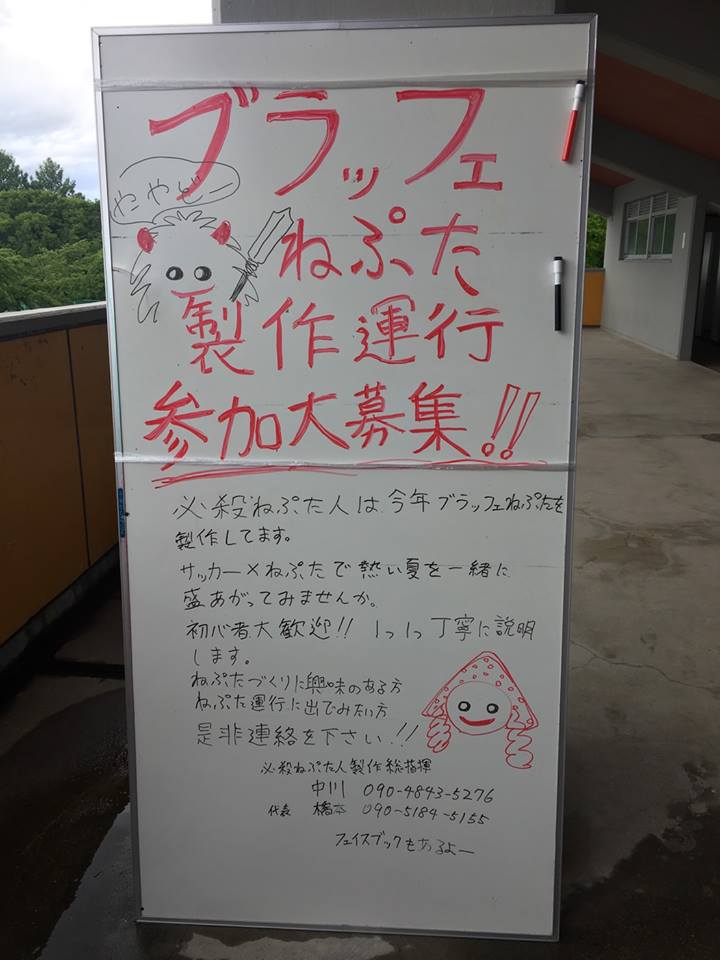 ブラッフェ
ややどー
ねぷた
製作運行
参加大募集!!
必殺ねぷた人は今年ブラッフェねぷたを
製作してます。
サッカー×ねぷたで熱い夏を一緒に
盛あがってみませんか。
初心者大歓迎!! 1つ1つ丁寧に説明
します。
ねぷたづくりに興味のある方
ねぷた運行に出てみたい方
是非連絡を下さい!!
必殺ねぷた人製作総指揮
中川 090-4843-5276
代表 橋本 090-5184-5155
フェイスブックもあるよー